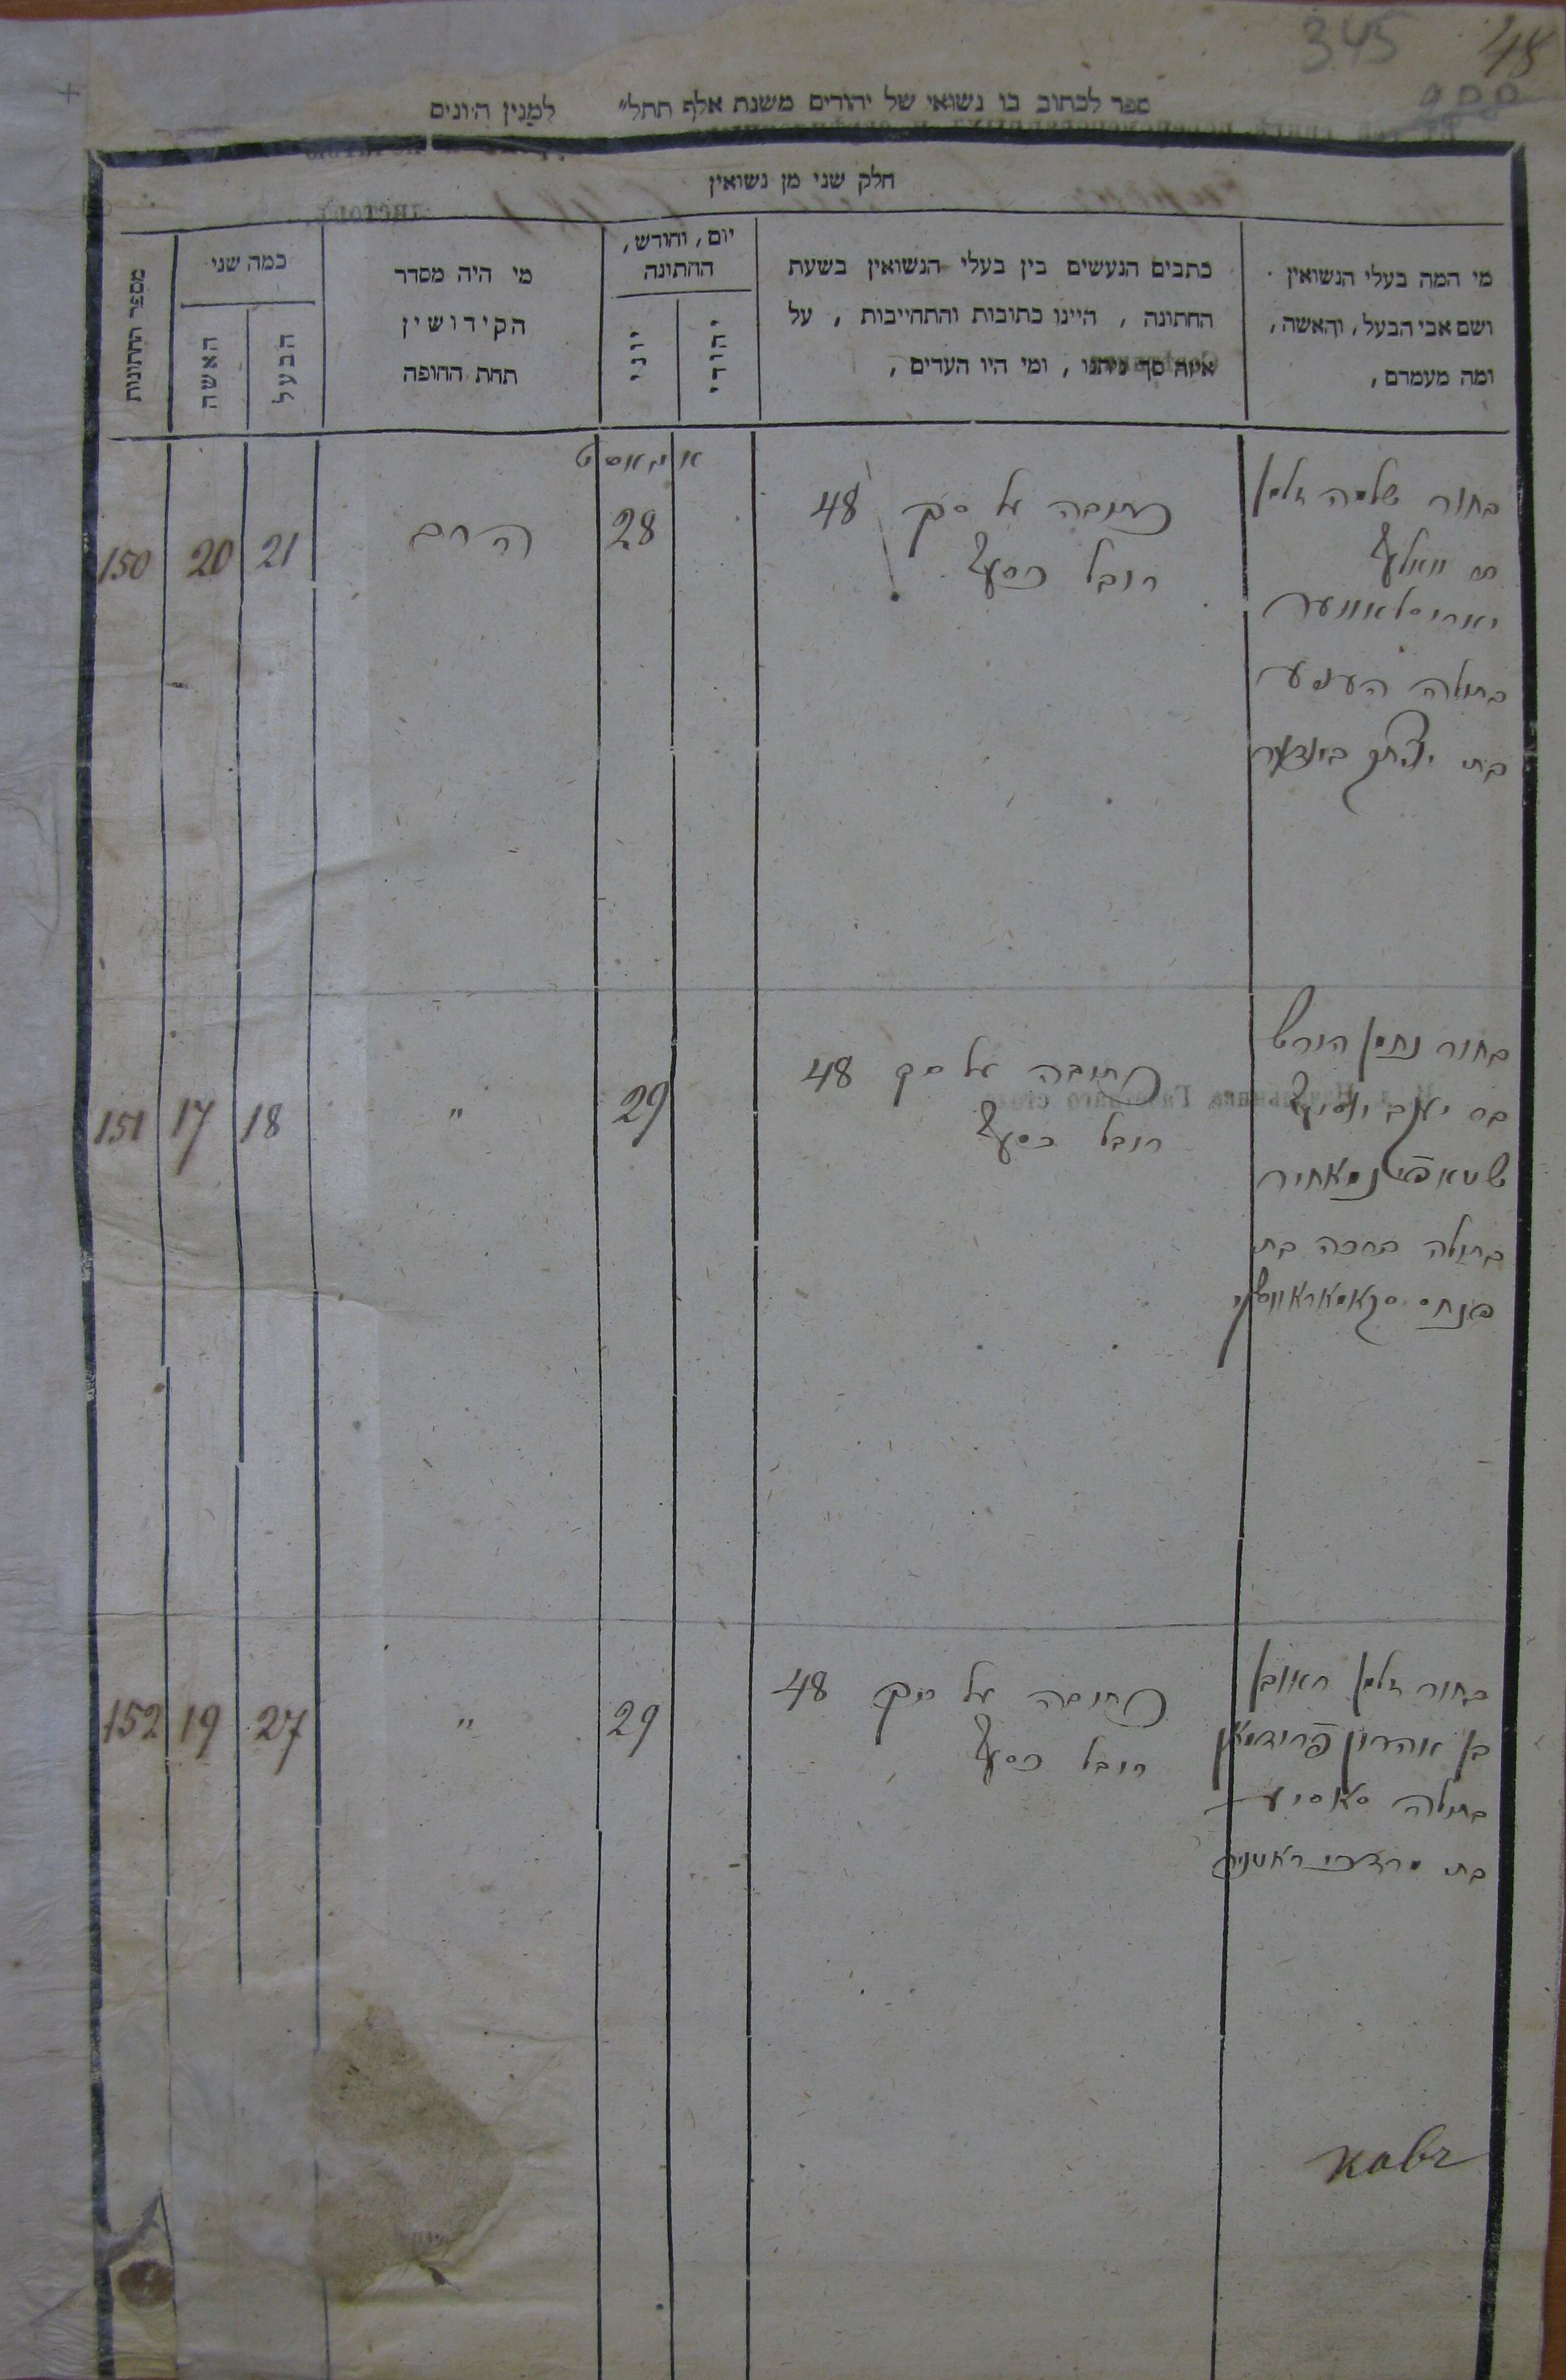 345 48
ספר לכתוב בו נשואי של יהודים משנת אלף תתל״ למנין היונים
חלק שני מן נשואין
מי המה בעלי הנשואין
ושם אבי הבעל, והאשה,
ומה מעמדם,
כתבים הנעשים בין בעלי הנשואין בשעת
החתונה, היינו כתובות והתחייבות, על
איזה סך ניתנו, ומי היו העדים,
יום, וחודש,
החתונה
יהודי
יוני
מי היה מסדר
הקידושין
תחת החופה
כמה שני
הבעל
האשה
מספר החתונות
בחור שלמה זלמן
וואלף
יאריסלאווער
בתולה הענע
בת יצחק בינדער
כתובה על סך 48
רובל כסף
אויגאוסט
28
הרב
21
20
150
בחור נחמן הירש
בר יעקב יוסף
בתולה ברכה בת
פנחס סקאמאראווסקי
כתובה על סך 48
רובל כסף
29
"
18
17
151
בחור זלמן ראובן
בן אהרון פרידמאן
בתולה סאסיע
בת מרדכי
כתובה על סך 48
רובל כסף
29
"
27
19
152